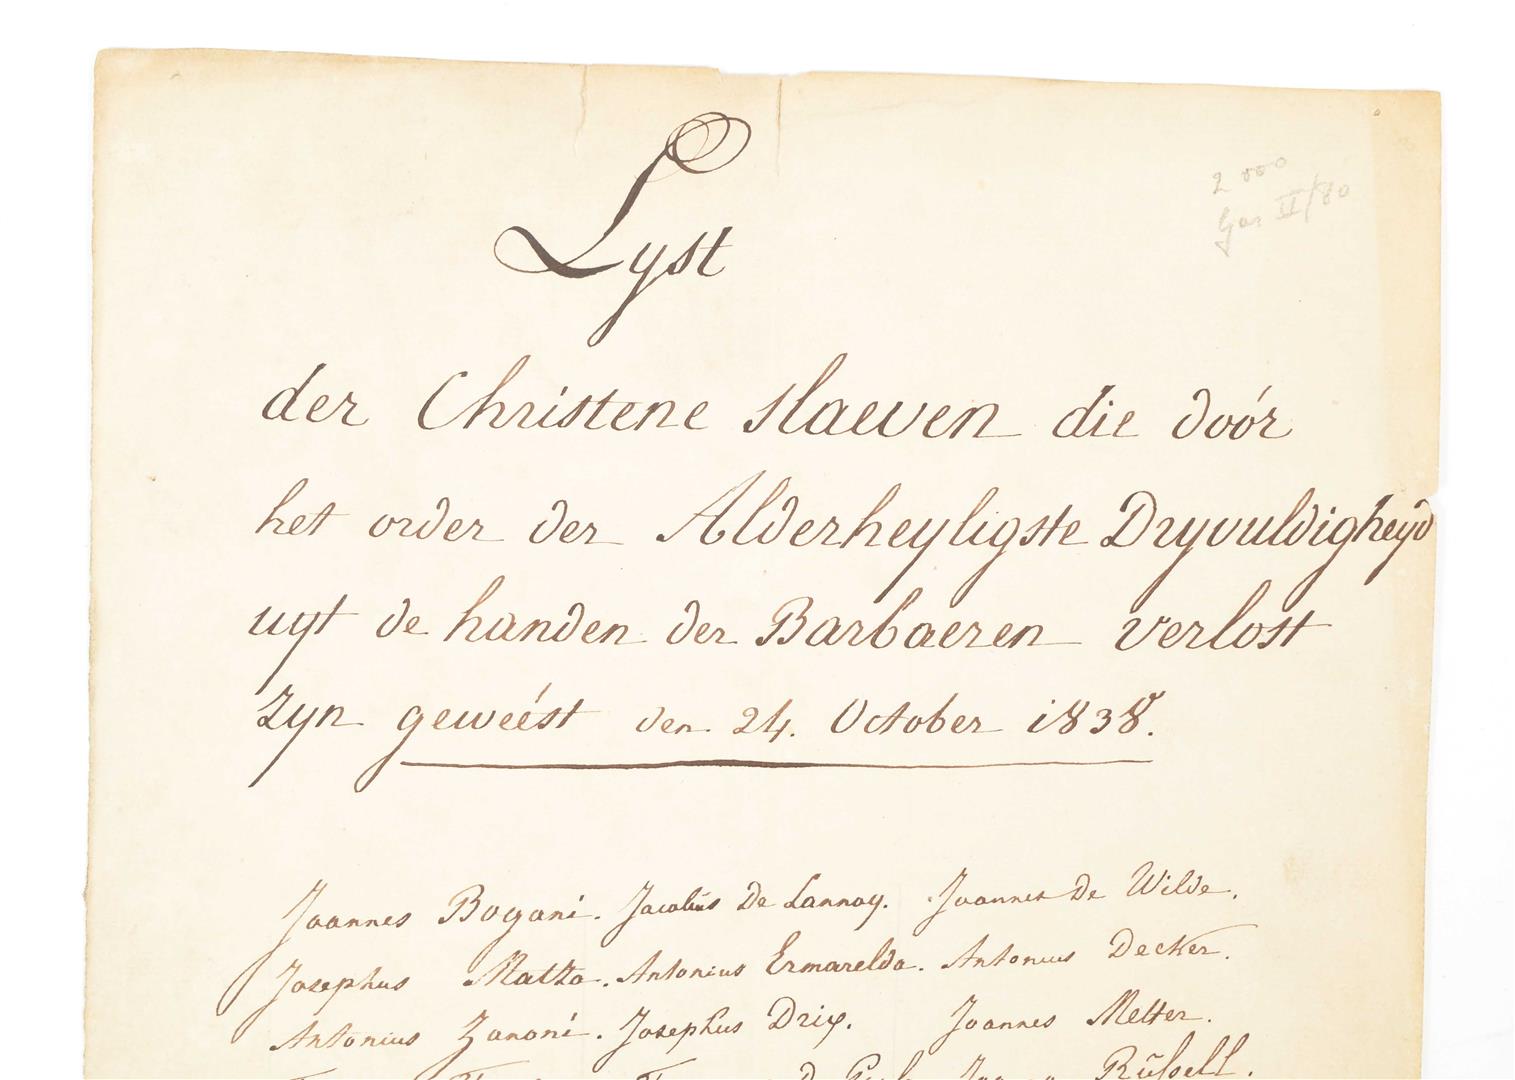 2 000
II/80
Lyst
der Christene slaeven die doór
het order der Alderheyligste Dryvuldigheyd
uyt de handen der Barbaeren verlost
zyn geweést den 24. October 1838.
Joannes Bogani. Jacobus De Lannoy. Joannes De Wilde.
Josephus Matza. Antonius Ermarelda. Antonius Decker.
Antonius Zanoni. Josephus Drix. Joannes Metter.